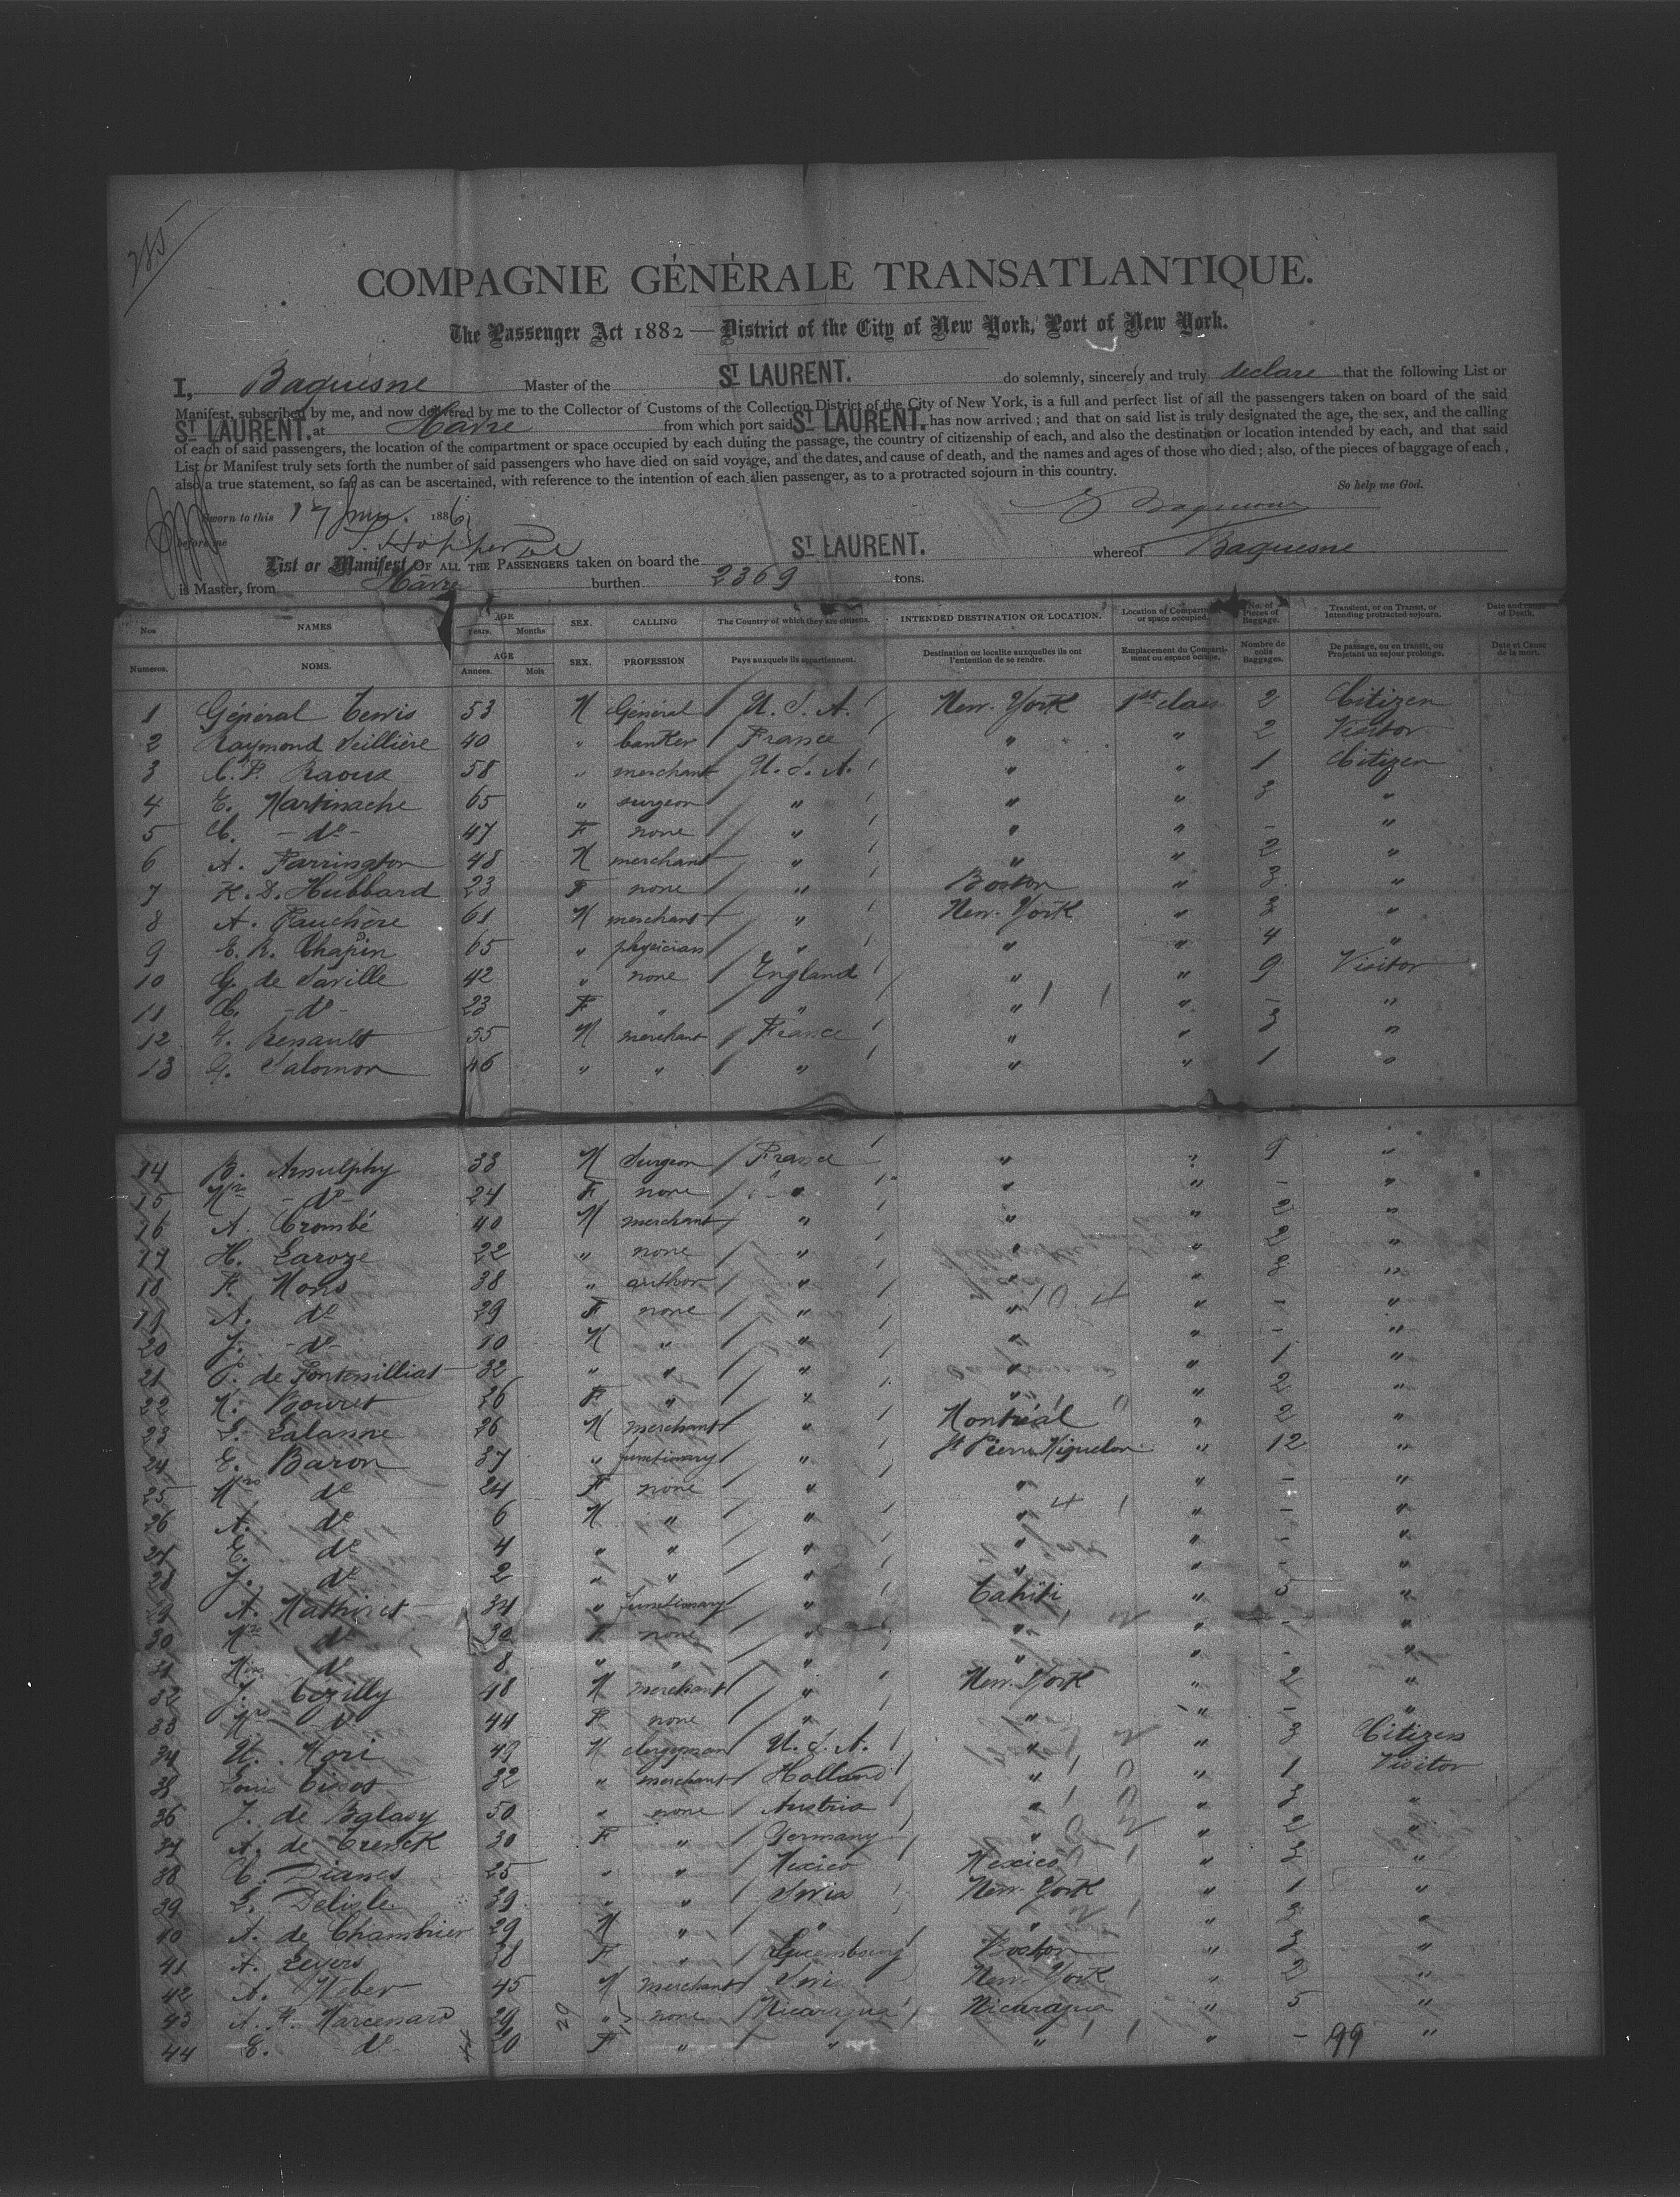 285
COMPAGNIE GÉNÉRALE TRANSATLANTIQUE.
The Passenger Act 1882 — District of the City of New York, Port of New York.
I, Baquesne Master of the ST LAURENT. do solemnly, sincerely and truly declare that the following List or
Manifest, subscribed by me, and now delivered by me to the Collector of Customs of the Collection District of the City of New York, is a full and perfect list of all the passengers taken on board of the said
ST LAURENT. at Havre from which port said ST LAURENT. has now arrived; and that on said list is truly designated the age, the sex, and the calling
of each of said passengers, the location of the compartment or space occupied by each during the passage, the country of citizenship of each, and also the destination or location intended by each, and that said
List or Manifest truly sets forth the number of said passengers who have died on said voyage, and the dates, and cause of death, and the names and ages of those who died; also, of the pieces of baggage of each,
also a true statement, so far as can be ascertained, with reference to the intention of each alien passenger, as to a protracted sojourn in this country.
So help me God.
Sworn to this 17 1886 Baquesne
before me
List or Manifest OF ALL THE PASSENGERS taken on board the ST LAURENT. whereof Baquesne
is Master, from Havre burthen 2369 tons.
Nos NAMES AGE years. Months SEX. CALLING The Country of which they are citizens. INTENDED DESTINATION OR LOCATION. Location of Compartment or space occupied. No. of Pieces of Baggage. Transient, or on Transit, or Intending protracted sojourn. Date and cause of Death.
Numeros. NOMS. AGE Années. Mois SEX. PROFESSION Pays auxquels ils appartiennent. Destination ou localite auxquelles ils ont l'entention de se rendre. Emplacement du Compartiment ou espace occupe. Nombre de colis Baggages. De passage, ou en transit, ou Projetant un sejour prolonge. Date et Cause de la mort.
1 Général Lewis 53 M Général U.S.A. New-York 1st class 2 Citizen
2 Raymond Seillière 40 " banker France " " 2 Visitor
3 C.P. Raoux 58 " merchant U.S.A. " " 1 Citizen
4 E. Martinache 65 " surgeon " " " 3 "
5 C. -do- 47 F none " " " - "
6 A. Farrington 48 M merchant " " " 2 "
7 K.D. Hubbard 23 F none " Boston " 3 "
8 A. Fauchère 61 M merchant " New-York " 3 "
9 E.R. Chapin 65 " physician " " " 4 "
10 G. de Saville 42 " none England " " 9 Visitor
11 C. -do- 23 F " " " " - "
12 E. Renault 55 M merchant France " " 3 "
13 G. Salomon 46 " " " " " 1 "
14 B. Arnulphy 33 M Surgeon France " " 9 "
15 Mrs -do- 24 F none " " " - "
16 A. Crombé 40 M merchant " " " 2 "
17 H. Laroze 22 " none " " " 2 "
18 F. Mons 38 " author " " " 3 "
19 A. do 29 F none " " " - "
20 J. -do- 10 M " " " " - "
21 P. de Fontenilliat 32 " " " " " 1 "
22 M. Bouret 26 F " " " " 2 "
23 L. Lalanne 26 M merchant " Montréal " 2 "
24 E. Baron 37 " functionary " St Pierre Miquelon " 12 "
25 Mrs do 24 F none " " " - "
26 A. do 6 M " " " " - "
27 E. do 4 " " " " " - "
28 J. do 2 " " " " " - "
29 A. Mathivet 34 " functionary " Tahiti " 5 "
30 Mrs do 30 F none " " " - "
31 Miss do 8 " " " " " - "
32 J. 48 M merchant " New-York " 2 "
33 Mrs do 44 F none " " " - "
34 U. Mori 49 M clergyman U.S.A. " " 3 Citizen
35 Louis 32 " merchant Holland " " 1 Visitor
36 J. de Balasy 50 " none Austria " " 3 "
37 A. de Trenck 30 F " Germany " " 2 "
38 C. Dianes 25 " " Mexico Mexico " 3 "
39 E. Delisle 39 " " New-York " 1 "
40 A. de Chambrier 29 M " " " " 2 "
41 A. Leyers 38 F " Luxembourg Boston " 3 "
42 A. Weber 45 M merchant New York " 2 "
43 A.F. Marcenaro 29 " none Nicaragua Nicaragua " 5 "
44 E. do 20 F " " " " - "
99